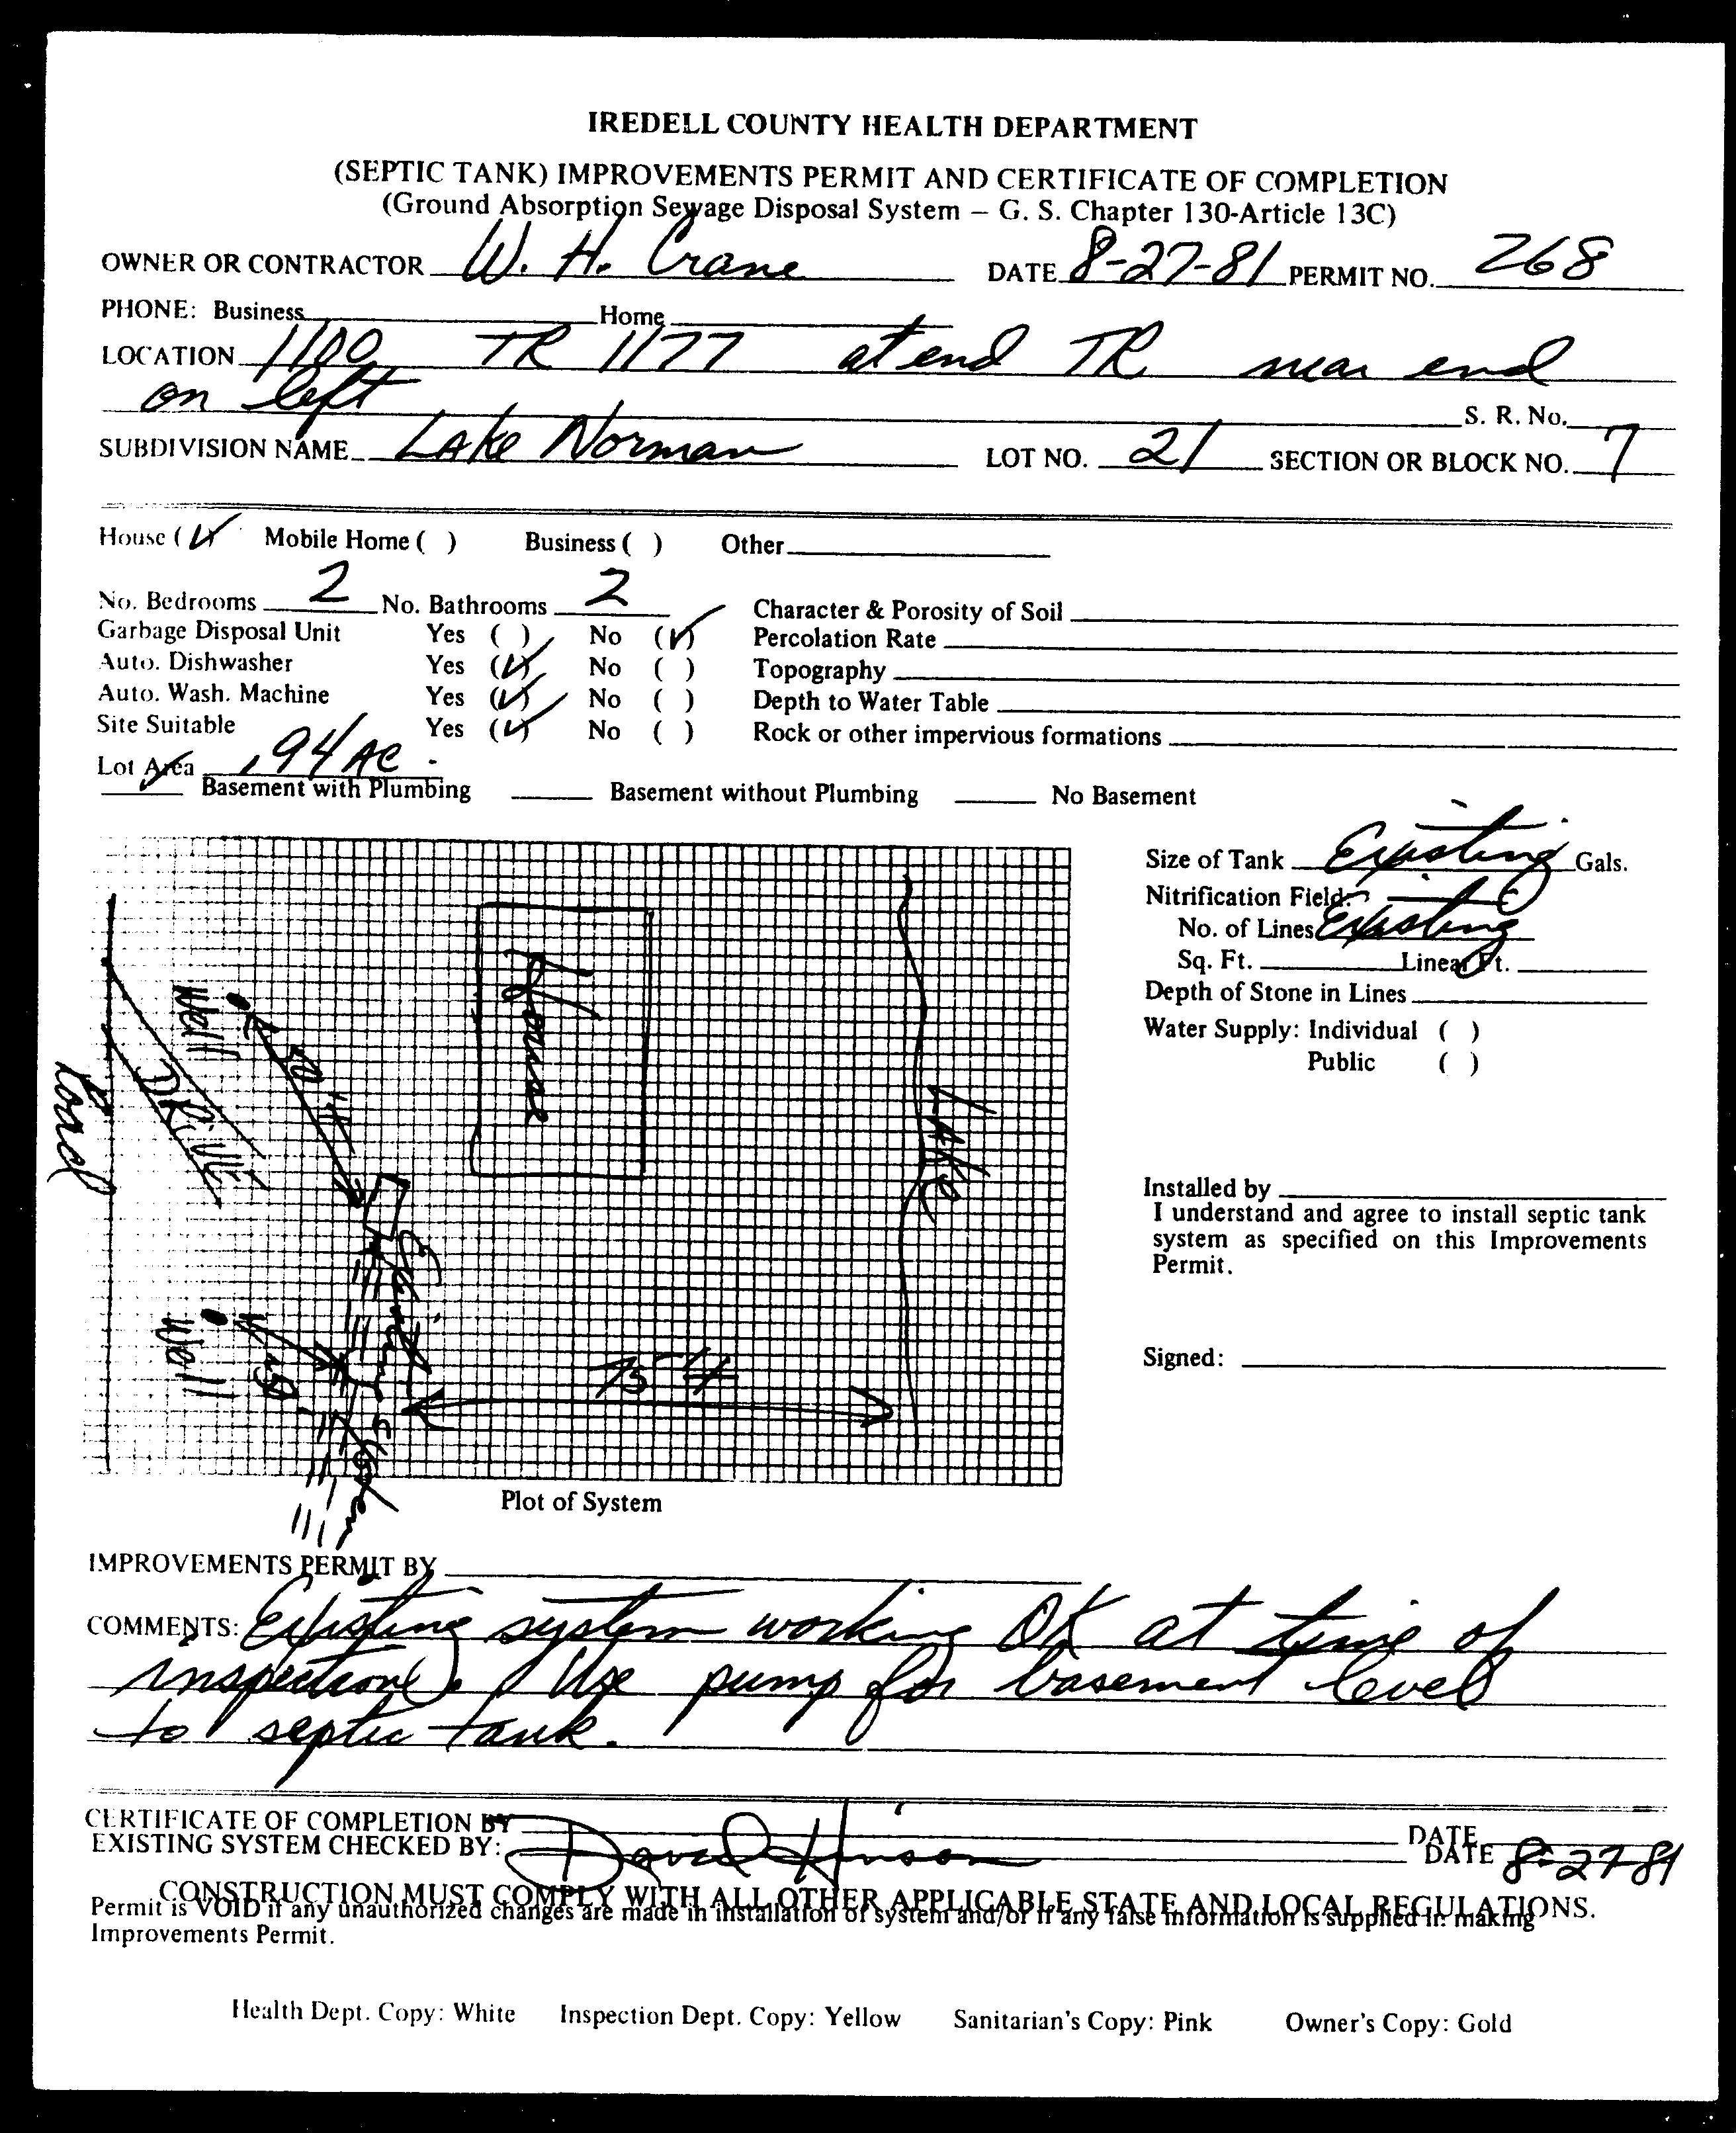 IREDELL COUNTY HEALTH DEPARTMENT
(SEPTIC TANK) IMPROVEMENTS PERMIT AND CERTIFICATE OF COMPLETION
(Ground Absorption Sewage Disposal System – G. S. Chapter 130-Article 13C)
OWNER OR CONTRACTOR W. H. Crane DATE 8-27-81 PERMIT NO. 268
PHONE: Business Home
LOCATION 1100 TR 1177 at end TR near end
on left
S. R. No.
SUBDIVISION NAME Lake Norman LOT NO. 21 SECTION OR BLOCK NO. 7
House (✓) Mobile Home ( ) Business ( ) Other
No. Bedrooms 2 No. Bathrooms 2 Character & Porosity of Soil
Garbage Disposal Unit Yes ( ) No (✓) Percolation Rate
Auto. Dishwasher Yes (✓) No ( ) Topography
Auto. Wash. Machine Yes (✓) No ( ) Depth to Water Table
Site Suitable Yes (✓) No ( ) Rock or other impervious formations
Lot Area .94 AC
✓ Basement with Plumbing Basement without Plumbing No Basement
Size of Tank Existing Gals.
Nitrification Field:
No. of Lines Existing
Sq. Ft. Linear Ft.
Depth of Stone in Lines
Water Supply: Individual ( )
Public ( )
Installed by
I understand and agree to install septic tank
system as specified on this Improvements
Permit.
Signed:
House
Lake
Well
Drive
Road
50 ft
Well
Existing System
75 ft
Plot of System
IMPROVEMENTS PERMIT BY
COMMENTS: Existing system working OK at time of
inspection. Use pump for basement level
to septic tank.
CERTIFICATE OF COMPLETION BY DATE
EXISTING SYSTEM CHECKED BY: David Hinson DATE 8-27-81
CONSTRUCTION MUST COMPLY WITH ALL OTHER APPLICABLE STATE AND LOCAL REGULATIONS.
Permit is VOID if any unauthorized changes are made in installation of system and/or if any false information is supplied in making
Improvements Permit.
Health Dept. Copy: White Inspection Dept. Copy: Yellow Sanitarian's Copy: Pink Owner's Copy: Gold